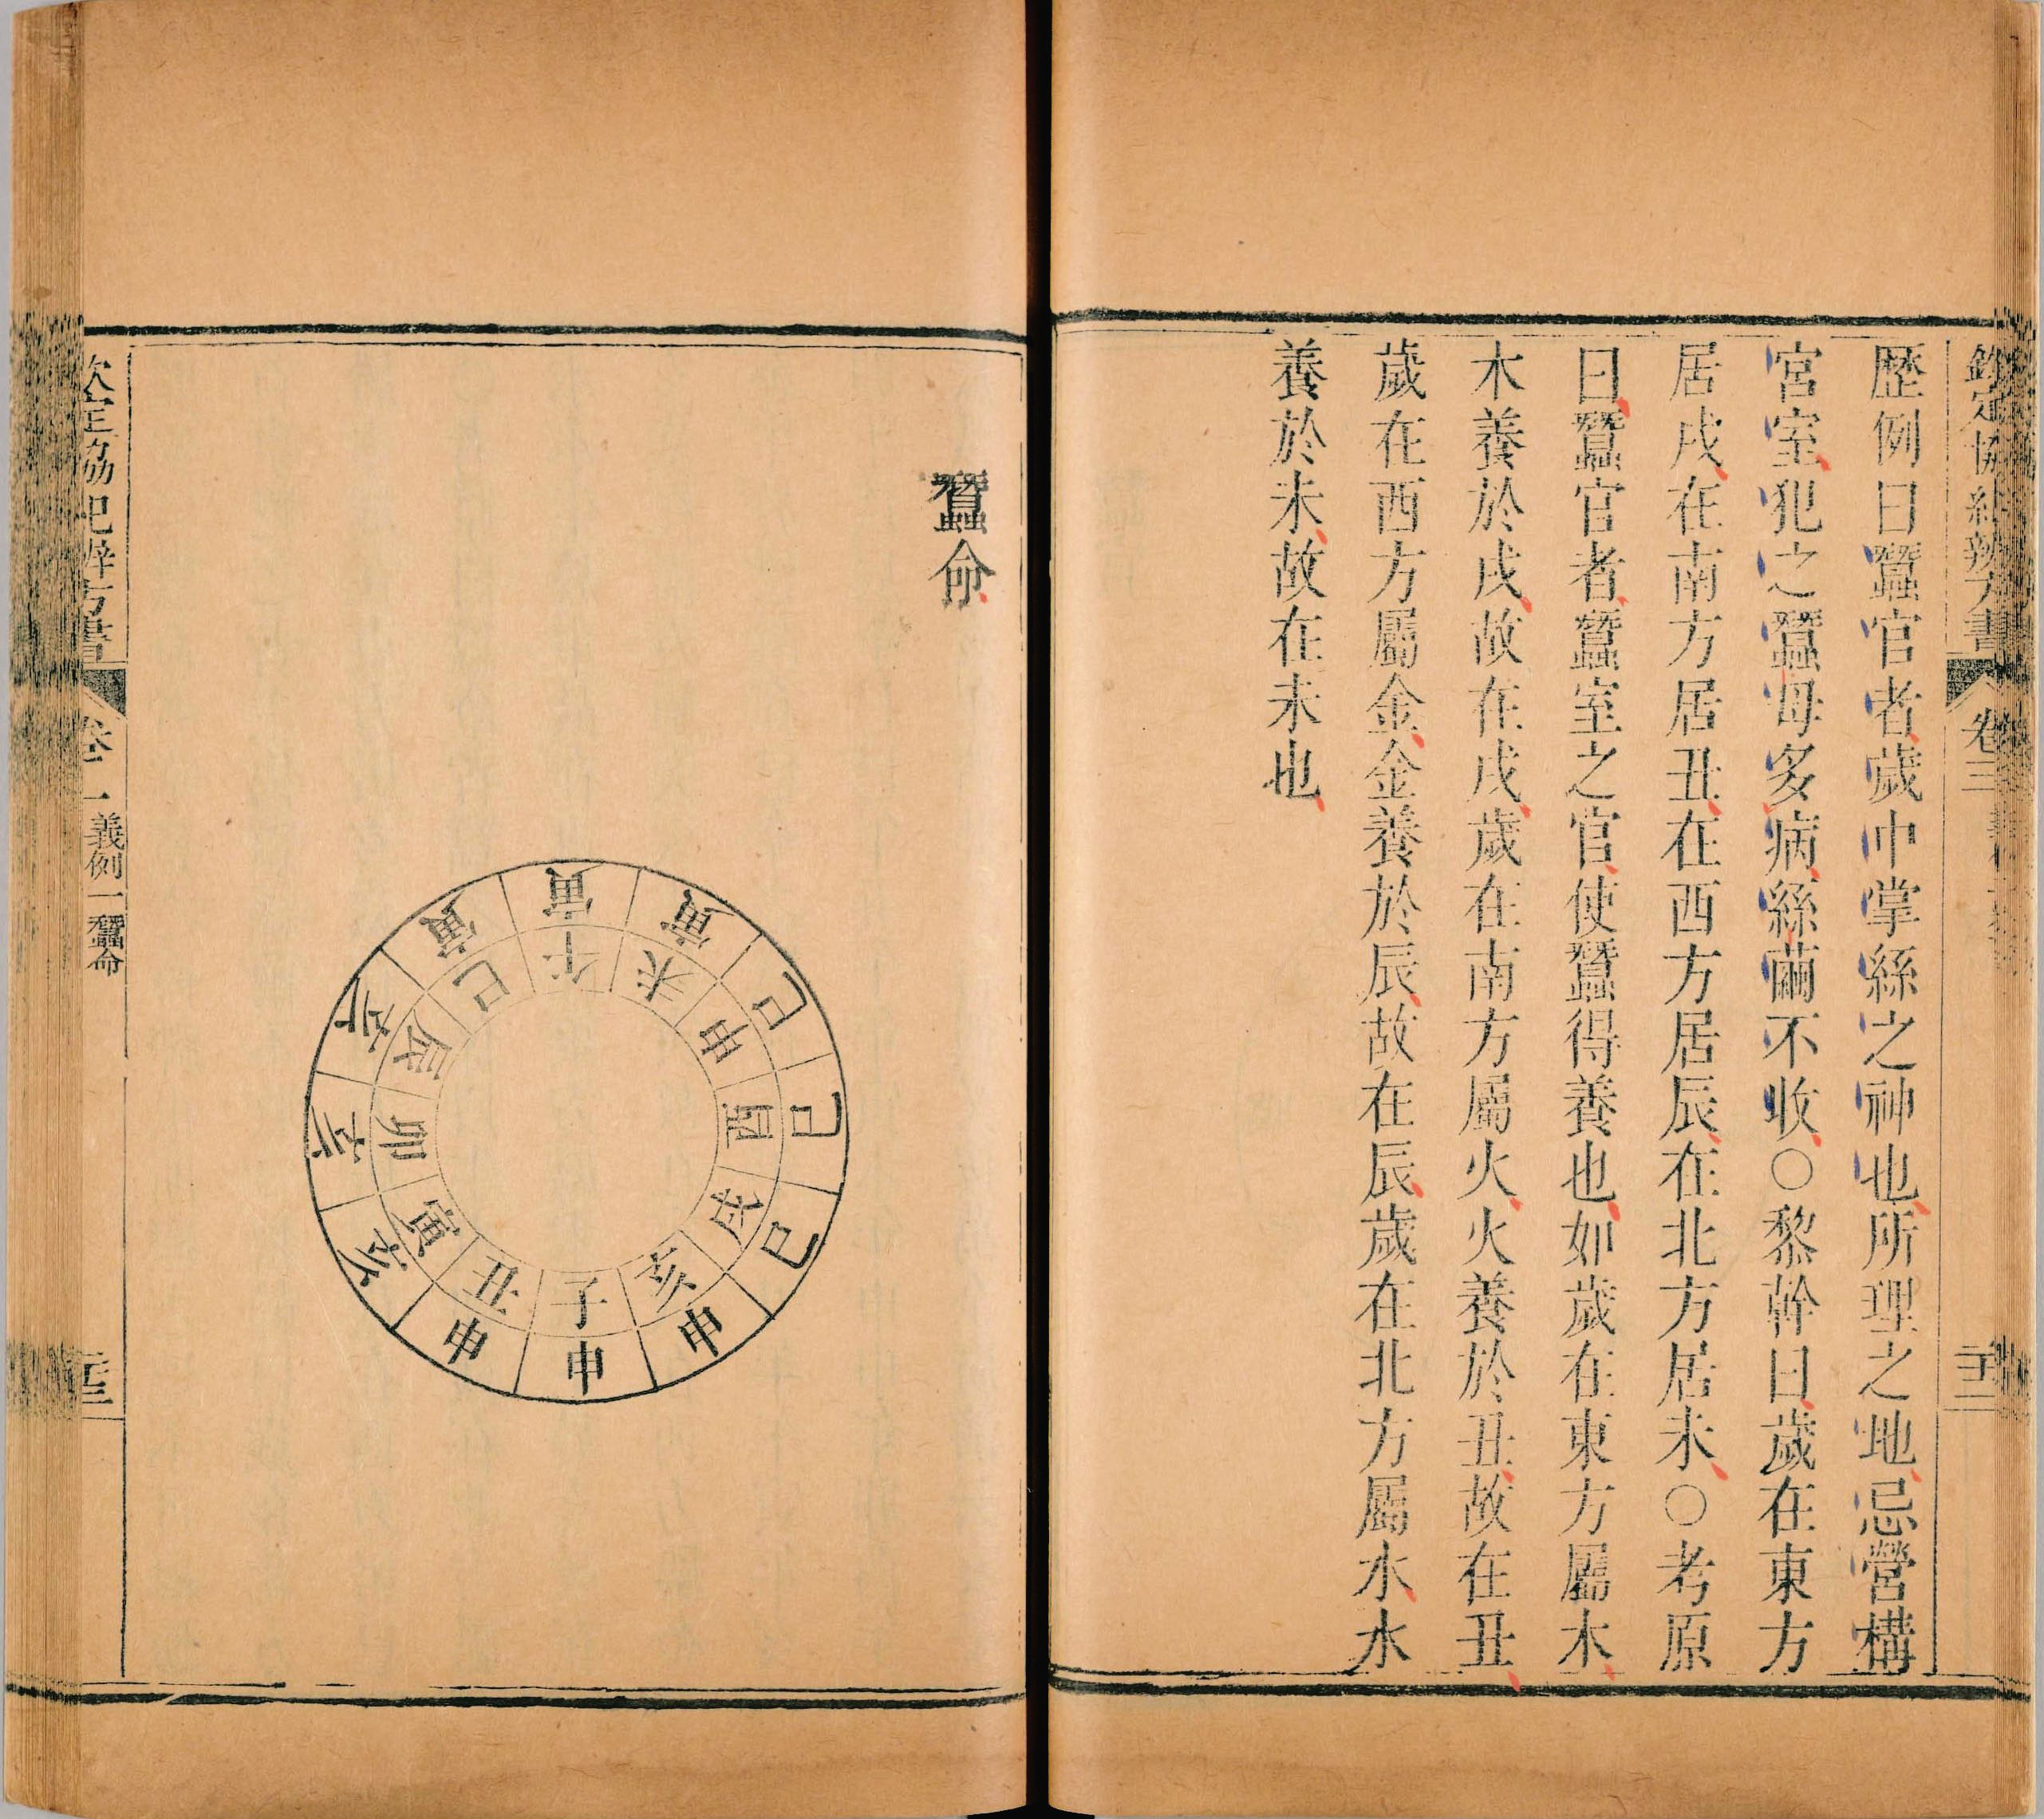 欽定協紀辨方書
卷三
二十二
歷例曰蠶官者歲中掌絲之神也所理之地忌營構
宮室犯之蠶母多病絲繭不收○黎幹曰歲在東方
居戌在南方居丑在西方居辰在北方居未○考原
曰蠶官者蠶室之官使蠶得養也如歲在東方屬木
木養於戌故在戌歲在南方屬火火養於丑故在丑
歲在西方屬金金養於辰故在辰歲在北方屬水水
養於未故在未也
蠶命
寅 寅 寅 巳 巳 巳 申 申 申 亥 亥 亥
巳 午 未 申 酉 戌 亥 子 丑 寅 卯 辰
欽定協紀辨方書
卷
義例一 蠶命